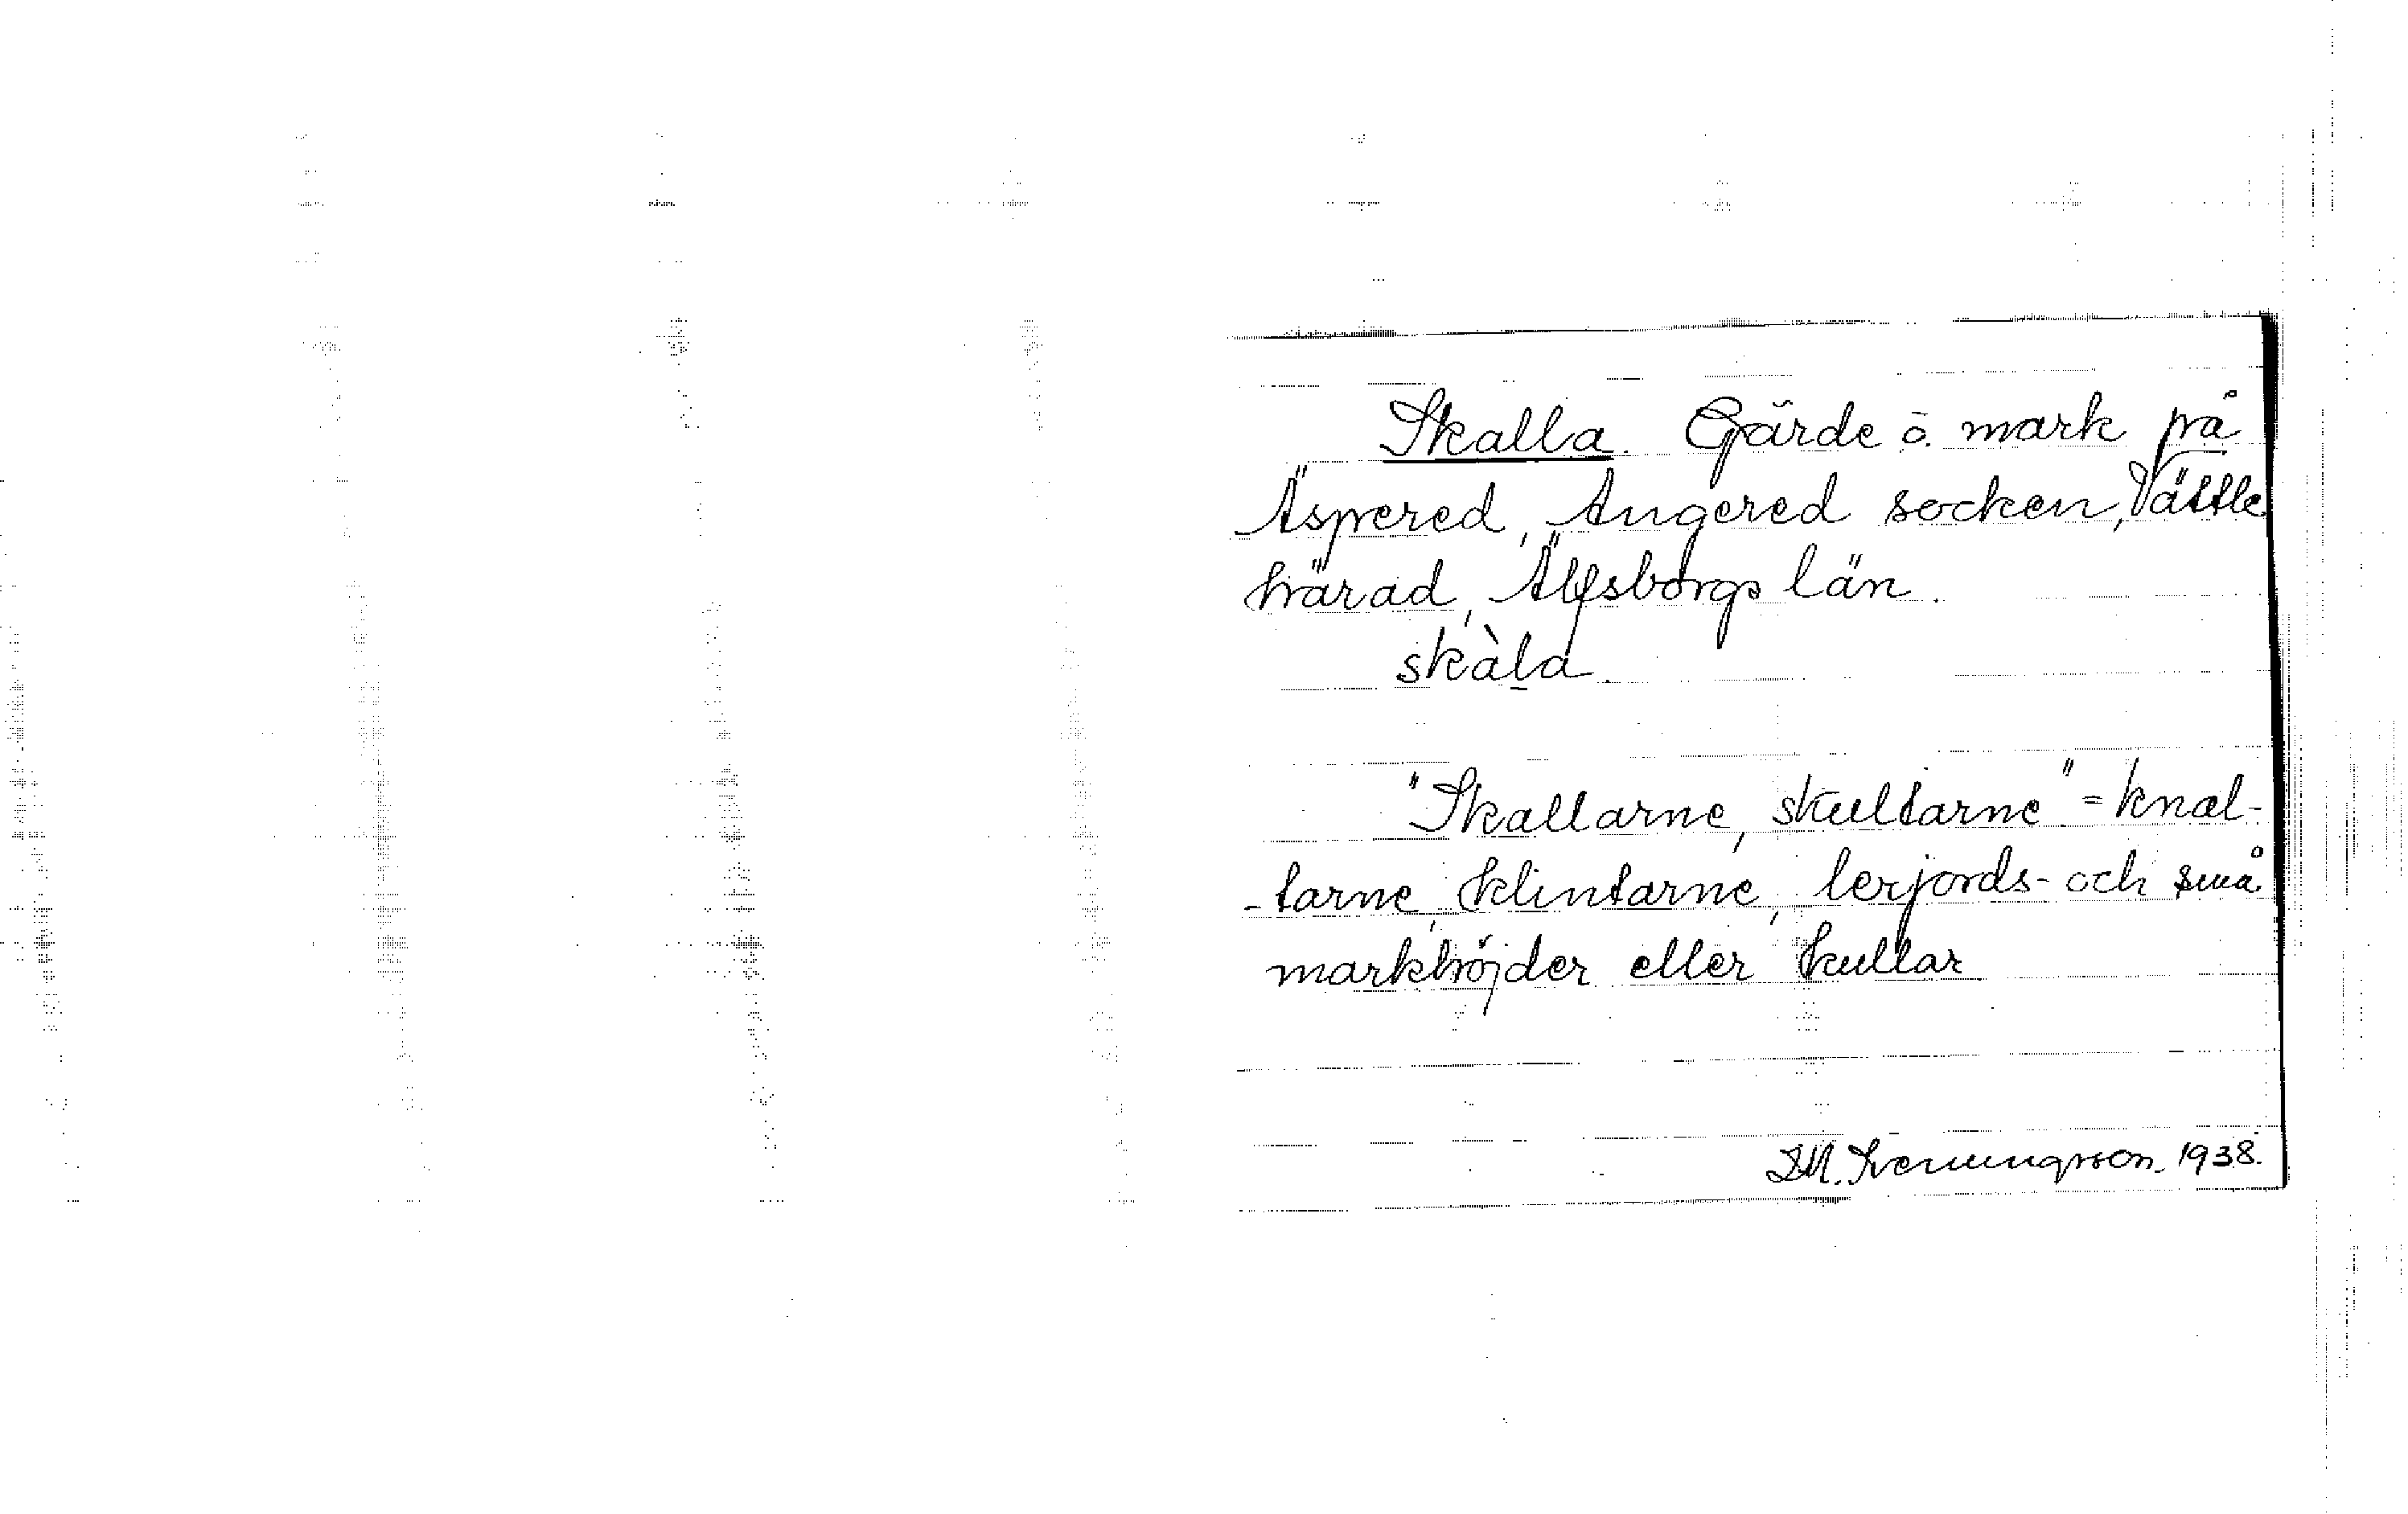 Skalla. Gärde o. mark på
Äspered, Angered socken, Vättle
härad, Älfsborgs län.
skàla.
"Skallarne, skultarne" = knal-
-tarne, klintarne, lerjords- och små
markhöjder eller kullar
1938.